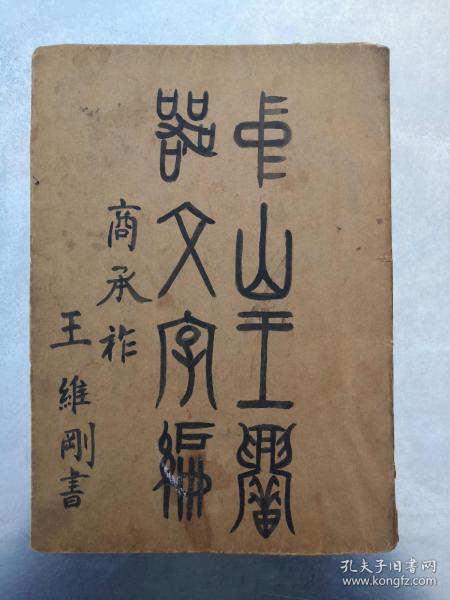 中山王
器文字編
商承祚
王維剛書
孔夫子旧书网
www.kongfz.com